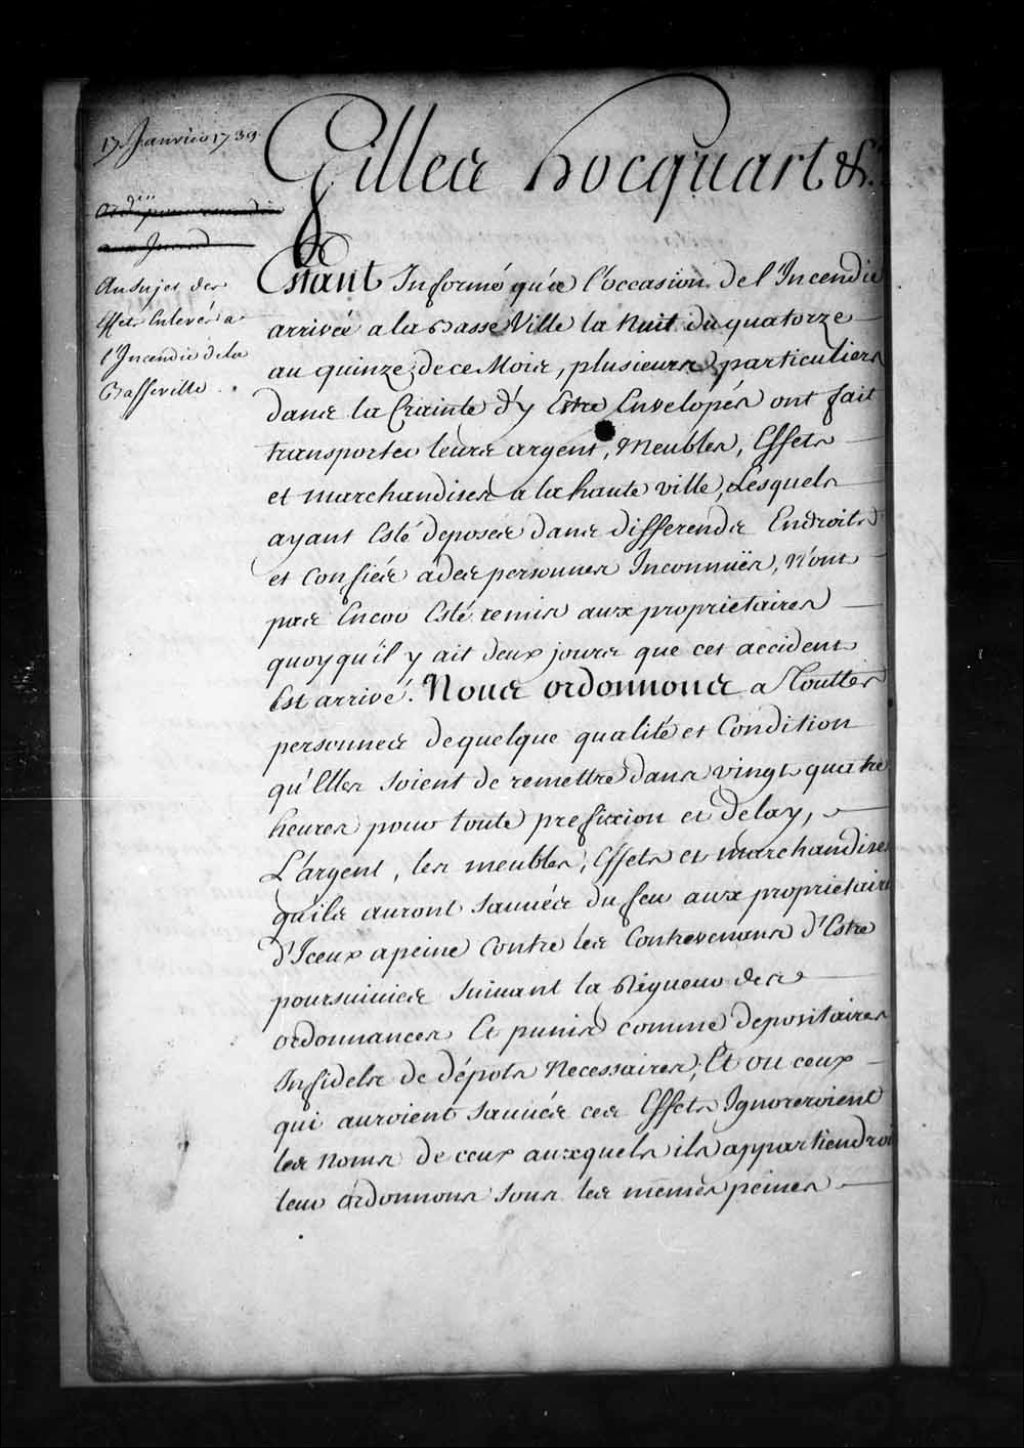 17 Janvier 1739.
Gilles hocquart &c.a
Au Sujet des
Effets Enlevés a
l'Incendie de la
Basseville.
Estant Informé qu'a l'occasion de l'Incendie
arrivée a la Basse Ville la Nuit du quatorze
au quinze de ce Mois, plusieurs particuliers
dans la Crainte d'y Estre Envelopés ont fait
transporter leurs argent, Meubles, Effets
et marchandises a la haute ville, Lesquels
ayant Esté deposés dans differends Endroits
et Confiés a des personnes Inconnües, N'ont
pas Encor Esté remis aux proprietaires
quoyqu'il y ait deux jours que cet accident
Est arrivé. Nous ordonnons a Touttes
personnes de quelque qualité et Condition
qu'Elles soient de remettre dans vingt quatre
heures pour toute prefixion et delay,
L'argent, les meubles, Effets et marchandises
qu'ils auront sauvés du feu aux proprietaires
d'Iceux a peine Contre les Contrevenans d'Estre
poursuivies suivant la Rigueur des
ordonnances Et punis comme depositaires
Infidels de dépots Necessaires; Et ou ceux
qui auroient sauvés ces Effets Ignoreroient
les Noms de ceux auxquels ils appartiendroi
leur ordonnons sous les mêmes peines